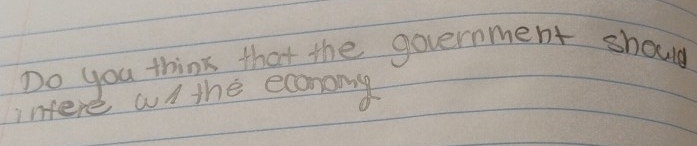 Do you think that the government should
intere w/ the economy